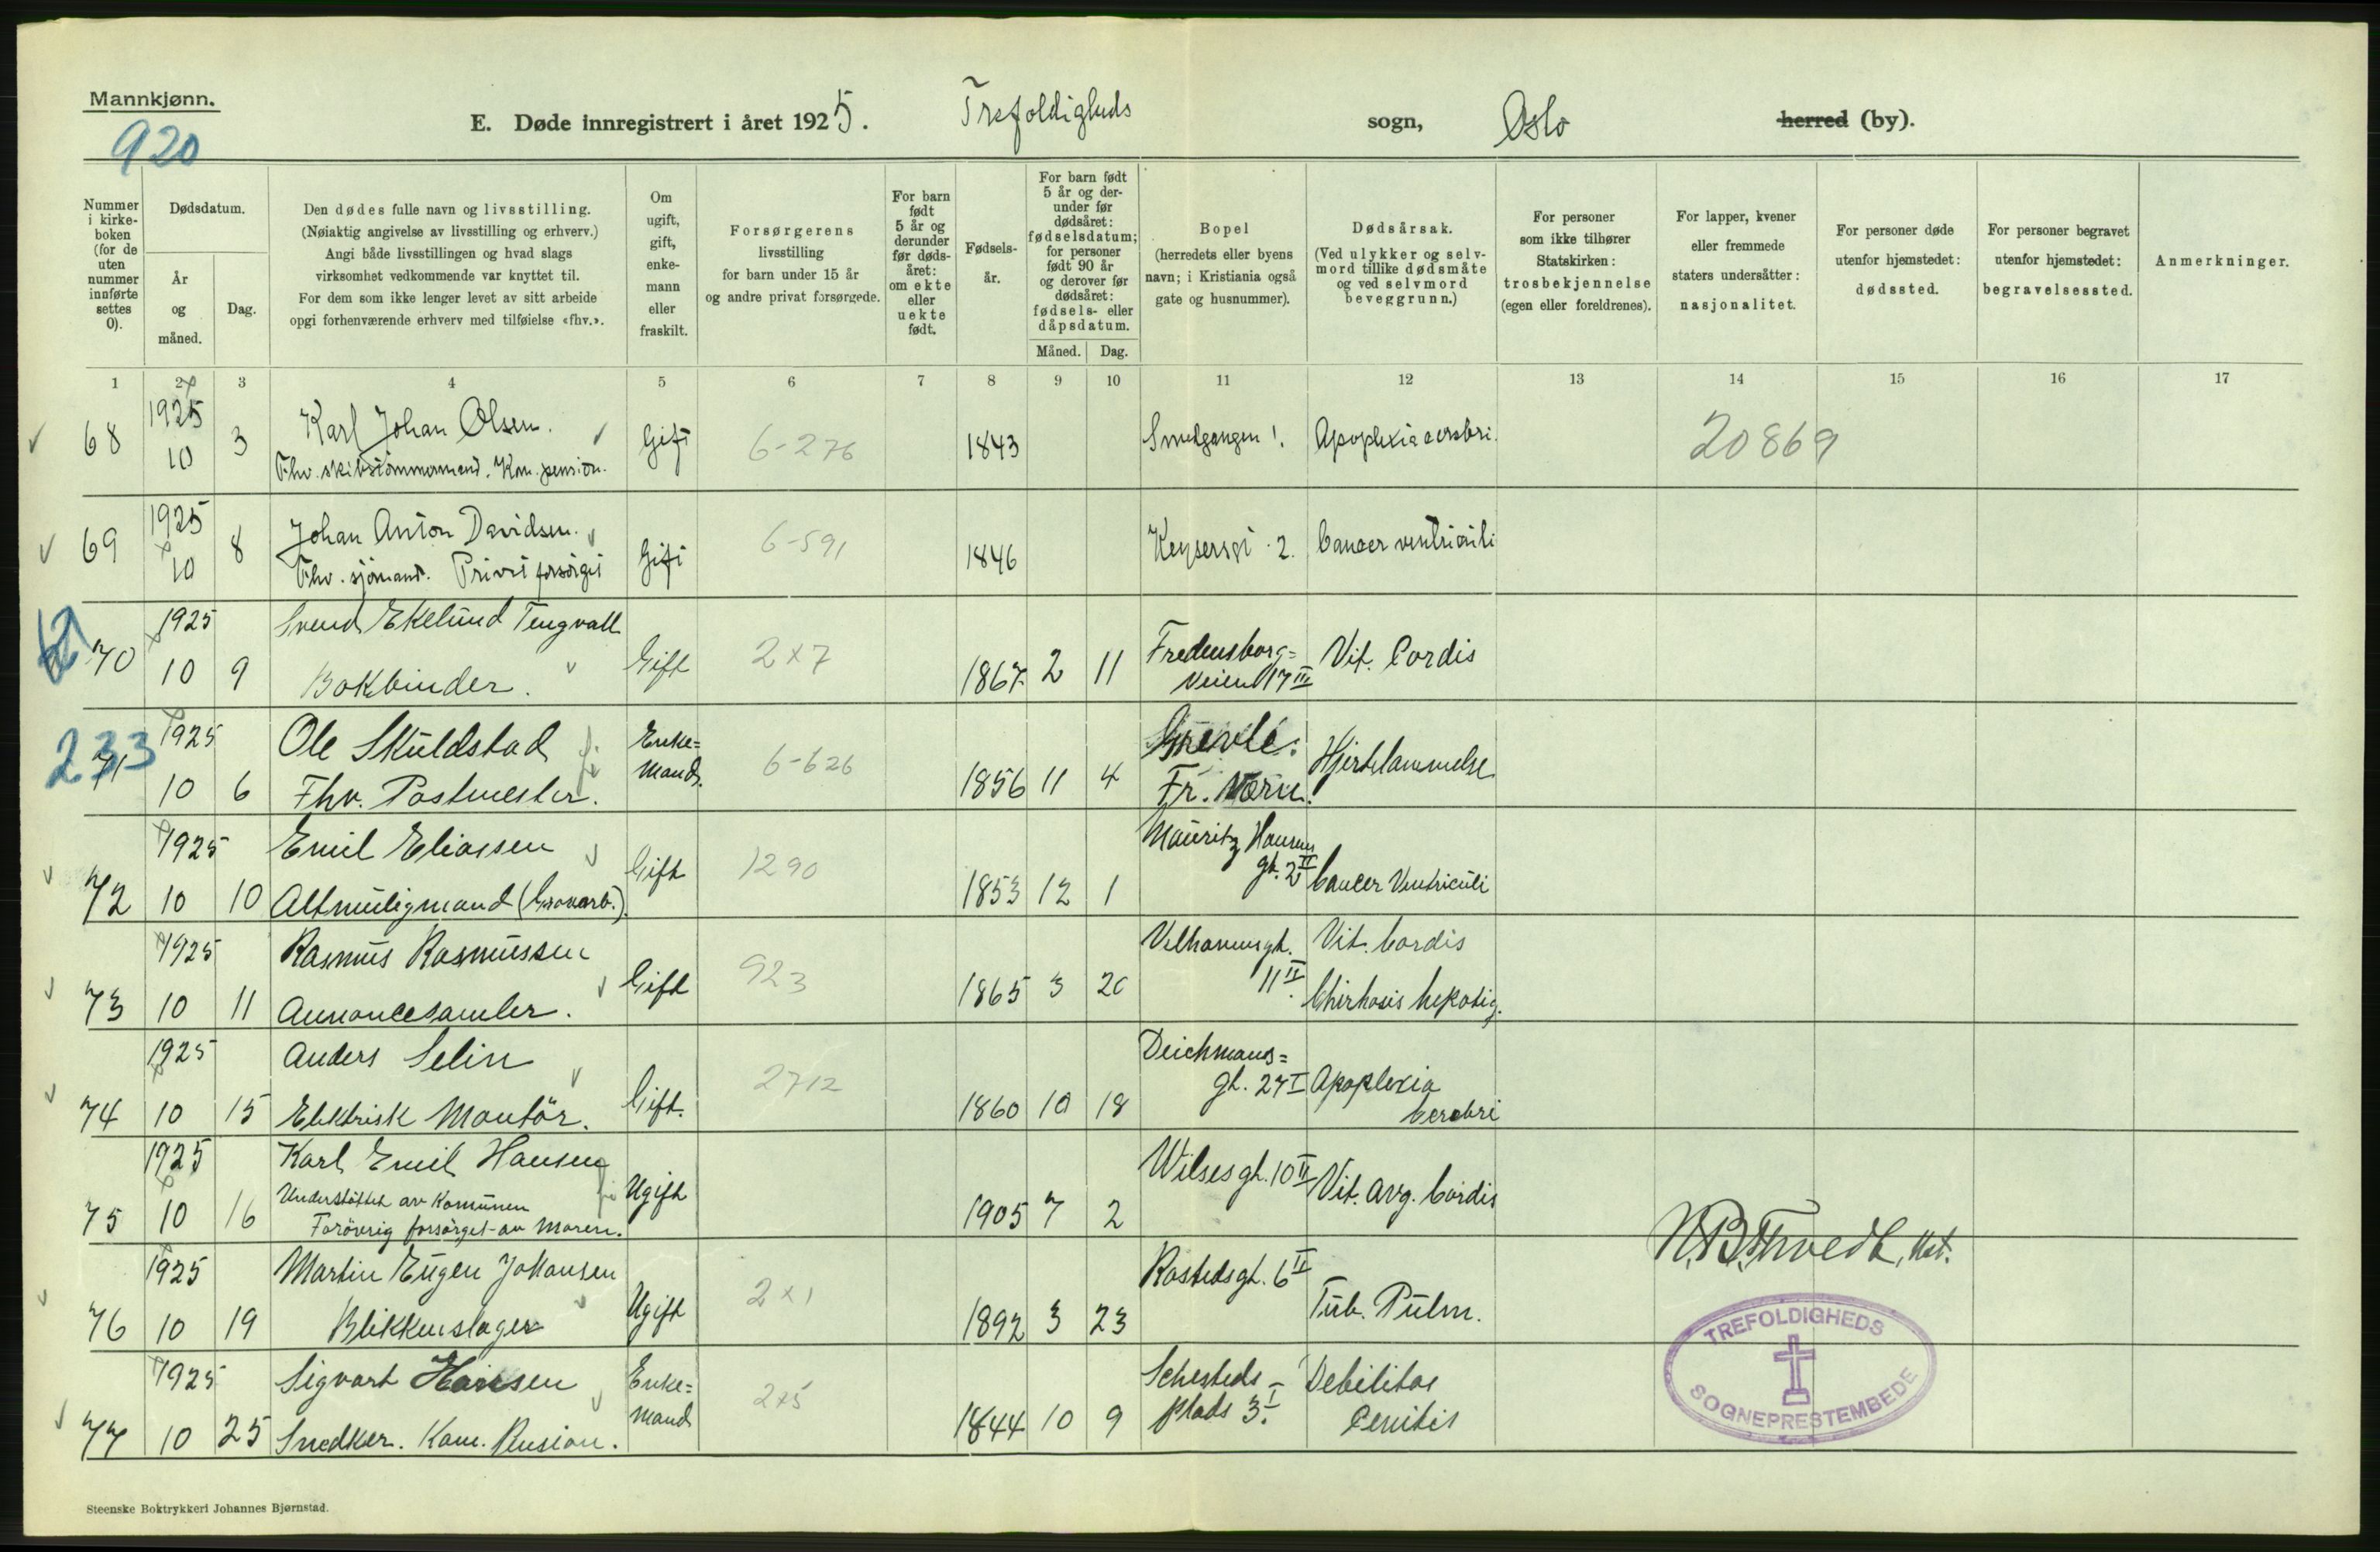 Mannkjønn.
920
E. Døde innregistrert i året 1925. Trefoldigheds sogn, Oslo herred (by).
Nummer i kirke- boken (for de uten nummer innførte settes 0).
Dødsdatum.
År og måned.
Dag.
Den dødes fulle navn og livsstilling.
(Nøiaktig angivelse av livsstilling og erhverv.)
Angi både livsstillingen og hvad slags
virksomhet vedkommende var knyttet til.
For dem som ikke lenger levet av sitt arbeide
opgi forhenværende erhverv med tilføielse «fhv.».
Om ugift, gift, enke- mann eller fraskilt.
Forsørgerens
livsstilling
for barn under 15 år
og andre privat forsørgede.
For barn født 5 år og derunder før døds- året: om ekte eller uekte født.
Fødsels- år.
For barn født 5 år og der- under før dødsåret: fødselsdatum; for personer født 90 år og derover før dødsåret: fødsels- eller dåpsdatum.
Måned. Dag.
Bopel
(herredets eller byens
navn; i Kristiania også
gate og husnummer).
Dødsårsak.
(Ved ulykker og selv-
mord tillike dødsmåte
og ved selvmord
beveggrunn.)
For personer
som ikke tilhører
Statskirken:
trosbekjennelse
(egen eller foreldrenes).
For lapper, kvener
eller fremmede
staters undersåtter:
nasjonalitet.
For personer døde
utenfor hjemstedet:
dødssted.
For personer begravet
utenfor hjemstedet:
begravelsessted.
Anmerkninger.
1 2 3 4 5 6 7 8 9 10 11 12 13 14 15 16 17
1925 Karl Johan Olsen.
68 10 3 Gift 6-276 1843 Smedgangen 1. Apoplexia cerebri. 20869
Fhv. skibstømmermand. Kom. pension.
1925 Johan Anton Davidsen.
69 10 8 Gift 6-591 1846 Keysersgt. 2. Cancer ventriculi
Fhv. sjømand. Privat forsørget
1925 Svend Ekelund Tengvall
70 10 9 Bokbinder. Gift 2x7 1867 2 11 Fredensborg=
veien 17 III Vit. Cordis
233
1925 Ole Skuldstad Enke=
71 10 6 Fhv. Postmester. mand. 6-626 1856 11 4
Fr. Værn. Hjertelammelse
1925 Emil Eliassen Mauritz Hansens
gt. 2 II
72 10 10 Altmuligmand (Grovarb.). Gift 1290 1853 12 1 Cancer Ventriculi
1925 Rasmus Rasmussen Welhavensgt. Vit. Cordis
73 10 11 Annoncesamler. Gift 923 1865 3 20 11 II Chirhosis hepatig.
1925 Anders Selin Deichmans=
gt. 27 I Apoplexia
74 10 15 Elektrisk Montör. Gift. 2712 1860 10 18 Cerebri
1925 Karl Emil Hansen Wilsesgt. 10 II
Understöttet av Komunen
75 10 16 Foröverig forsörget av Moren. Ugift 1905 7 2 Vit. Org. Cordis
N.B. Thvedt, Kst.
1925 Martin Eugen Johansen Rostedsgt. 6 II
76 10 19 Blikkenslager Ugift 2x1 1892 3 23 Tub. Pulm.
1925 Sigvart Hansen Enke= Sehesteds- Debilitas
77 10 25 Snedker. Kom. Pension. mand 2x5 1844 10 9 plads 3 I. Cenitis
TREFOLDIGHEDS
SOGNEPRESTEMBEDE
Steenske Boktrykkeri Johannes Bjørnstad.